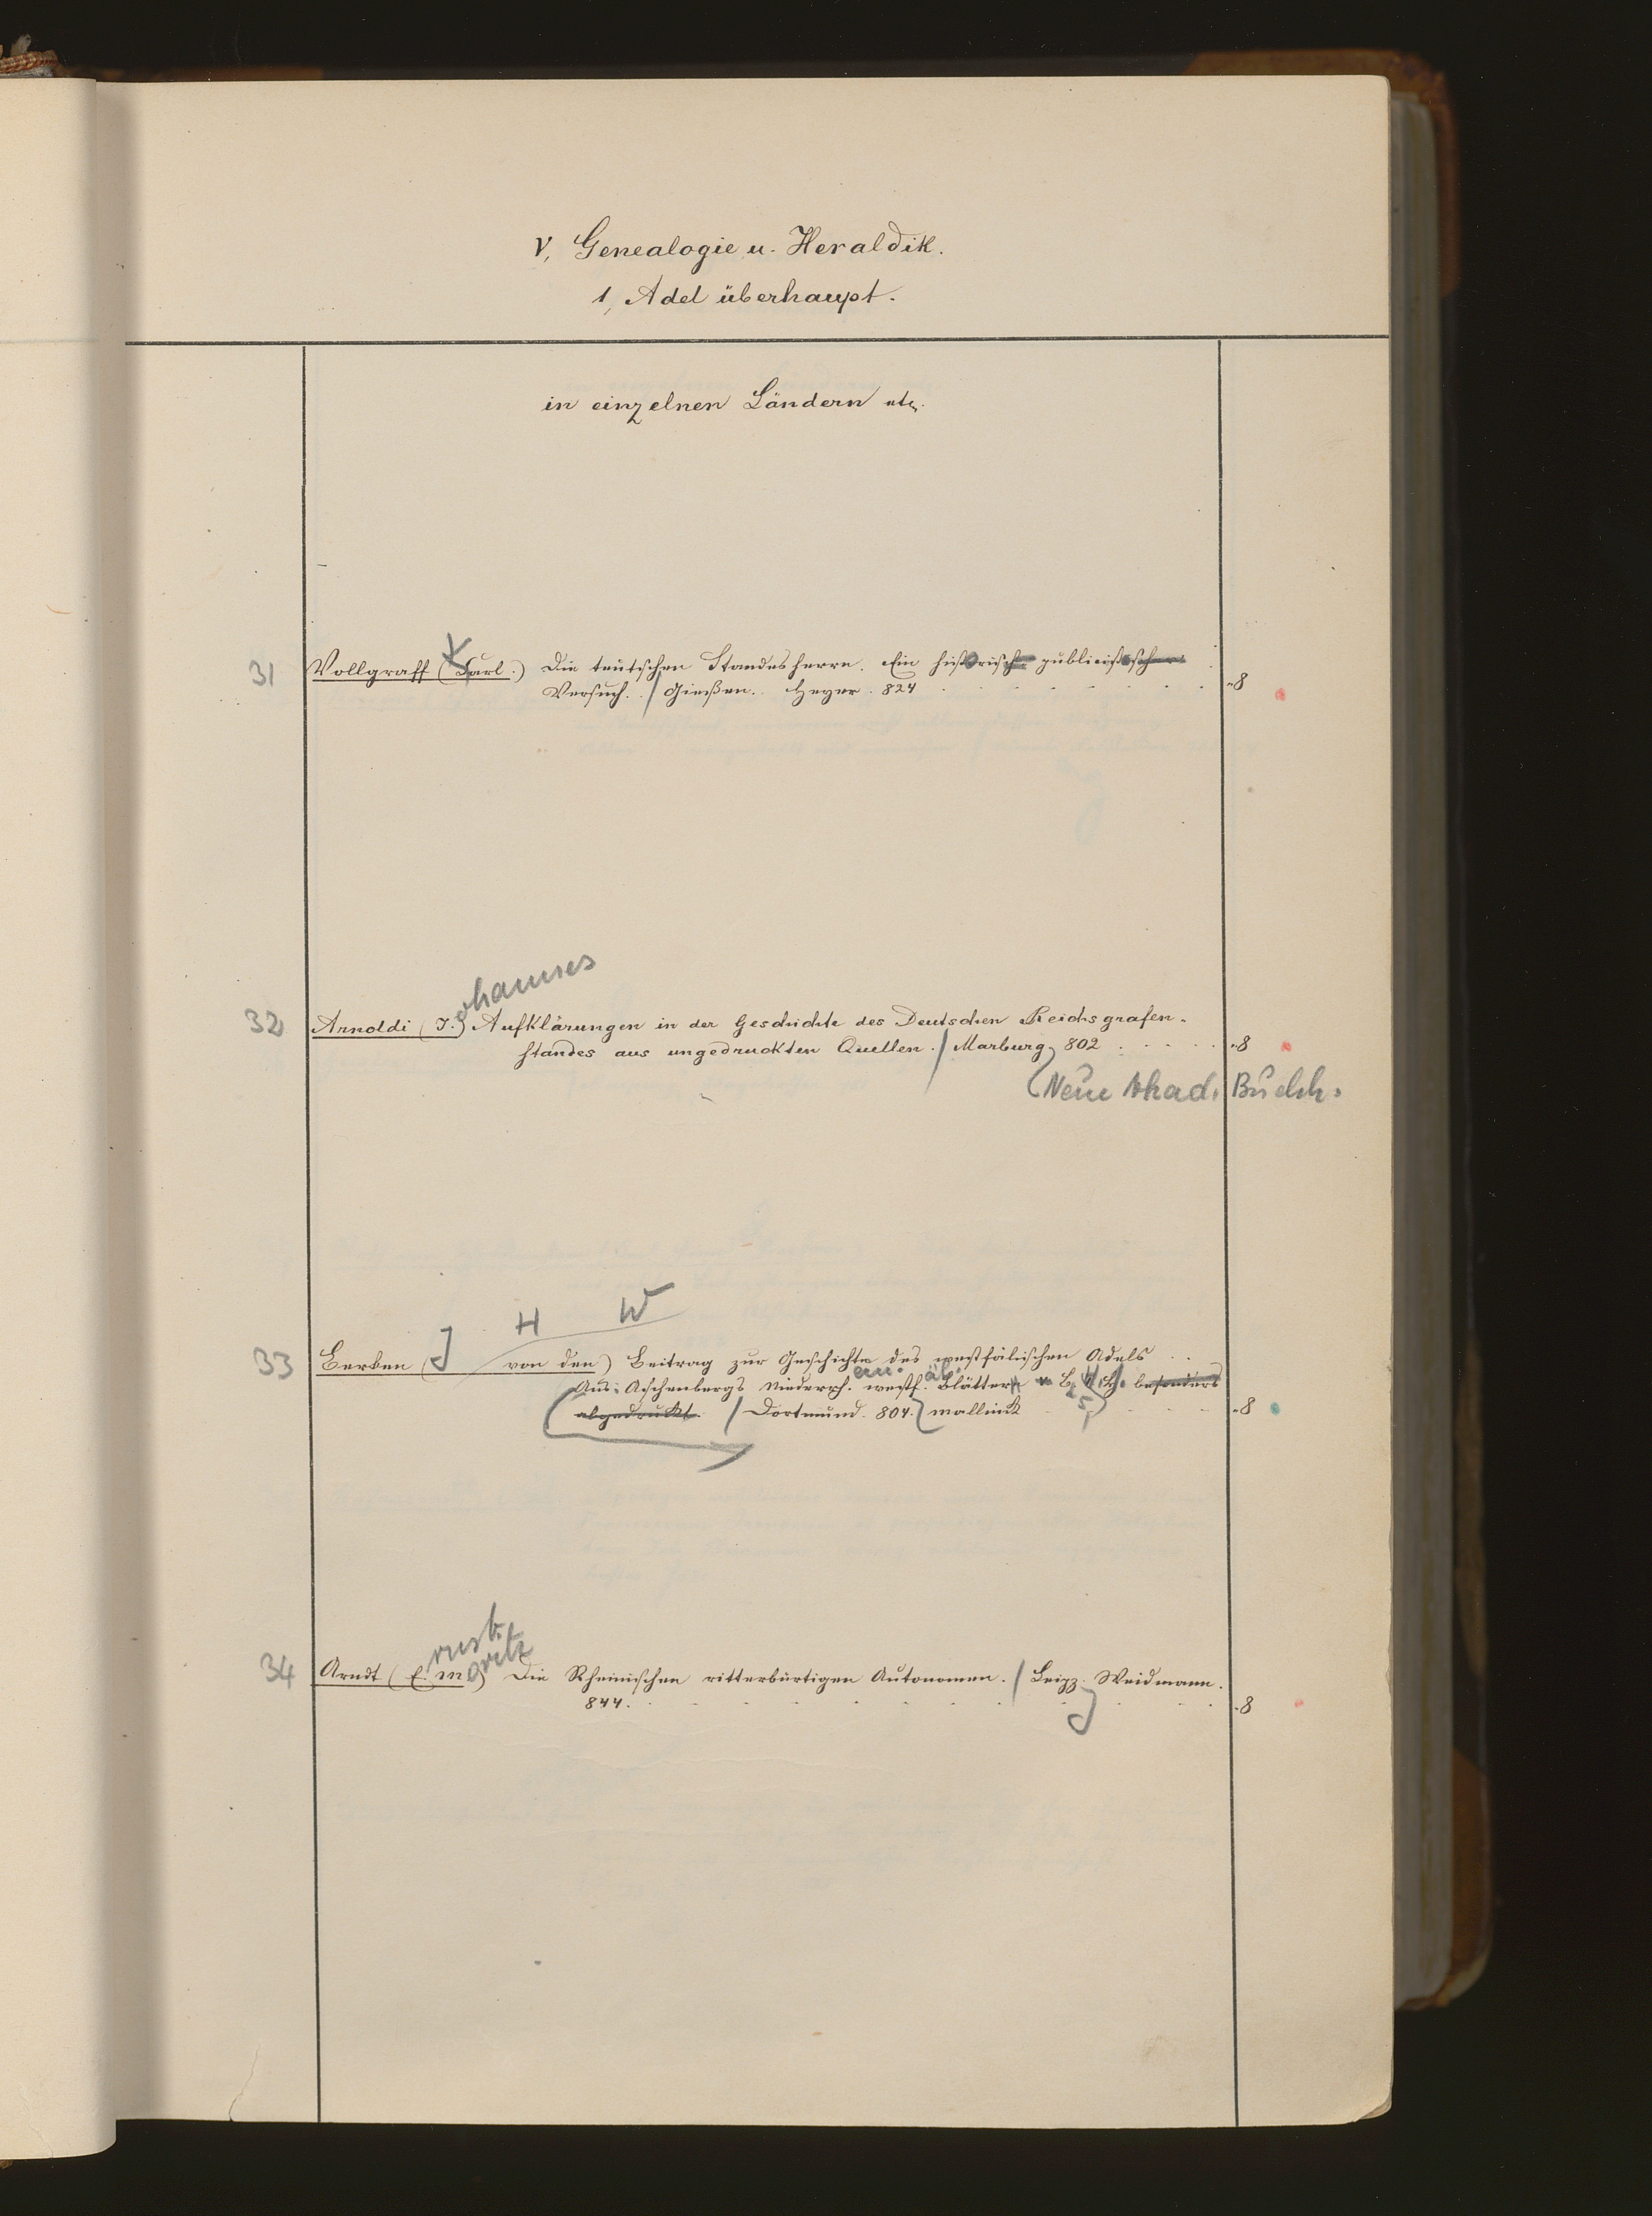 V, Genealogie u. Heraldik.
1, Adel überhaupt.
in einzelnen Ländern etc.
31 Vollgraff (Karl.) Die teutschen Standesherrn. Ein historisch publicistischer
Versuch. / Gießen. Heyer. 824 -8
ohannes
32 Arnoldi (J.) Aufklärungen in der Geschichte des Deutschen Reichsgrafen-
standes aus ungedruckten Quellen. / Marburg, 802 -8
(Neue Akad. Buchh.
J H W
33 Berken ( von den) Beitrag zur Geschichte des westfälischen Adels
Aus: Aschenbergs Niederrh. westf. Blättern besonders
abgedruckt. / Dortmund. 804. Mallinck -8
rnst
oritz
34 Arndt (E. M) Die Rheinischen ritterbürtigen Autonomen. / Leipz. Weidmann.
844. -8